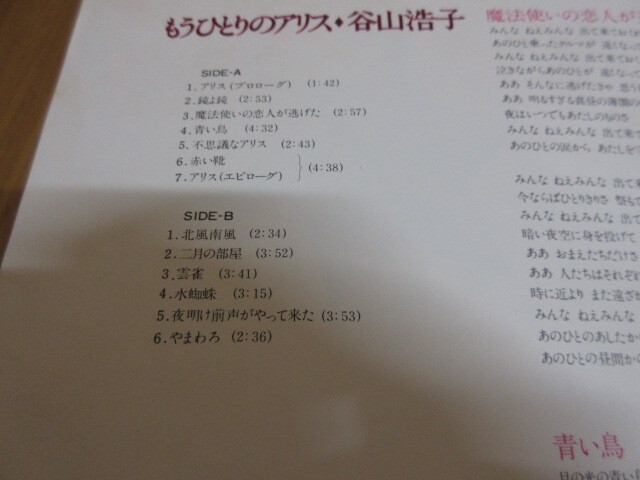 もうひとりのアリス◆谷山浩子
SIDE-A
1.アリス(プロローグ) (1:42)
2.鏡よ鏡 (2:53)
3.魔法使いの恋人が逃げた (2:57)
4.青い鳥 (4:32)
5.不思議なアリス (2:43)
6.赤い靴
7.アリス(エピローグ) (4:38)
SIDE-B
1.北風南風 (2:34)
2.二月の部屋 (3:52)
3.雲雀 (3:41)
4.水蜘蛛 (3:15)
5.夜明け前声がやって来た (3:53)
6.やまわろ (2:36)
魔法使いの恋人が
みんな ねえみんな 出て来て
あのひと乗ったクルマが
みんな ねえみんな 出て来て
泣きながらあのひとが
ああ そんなに逃げたきゃ
ああ 明るすぎる真昼の
夜はいつでもあたしのものさ
みんな ねえみんな 出て来て
あのひとの涙から あたしを
みんな ねえみんな 出て来
今ならばひとりきりさ
みんな ねえみんな 出て来
暗い夜空に身を投げて
ああ おまえたちだけさ
ああ 人たちはそれぞれ
時に近より また遠ざ
みんな ねえみんな
あのひとのあしたか
あのひとの昼間か
青い鳥
月の光の青い